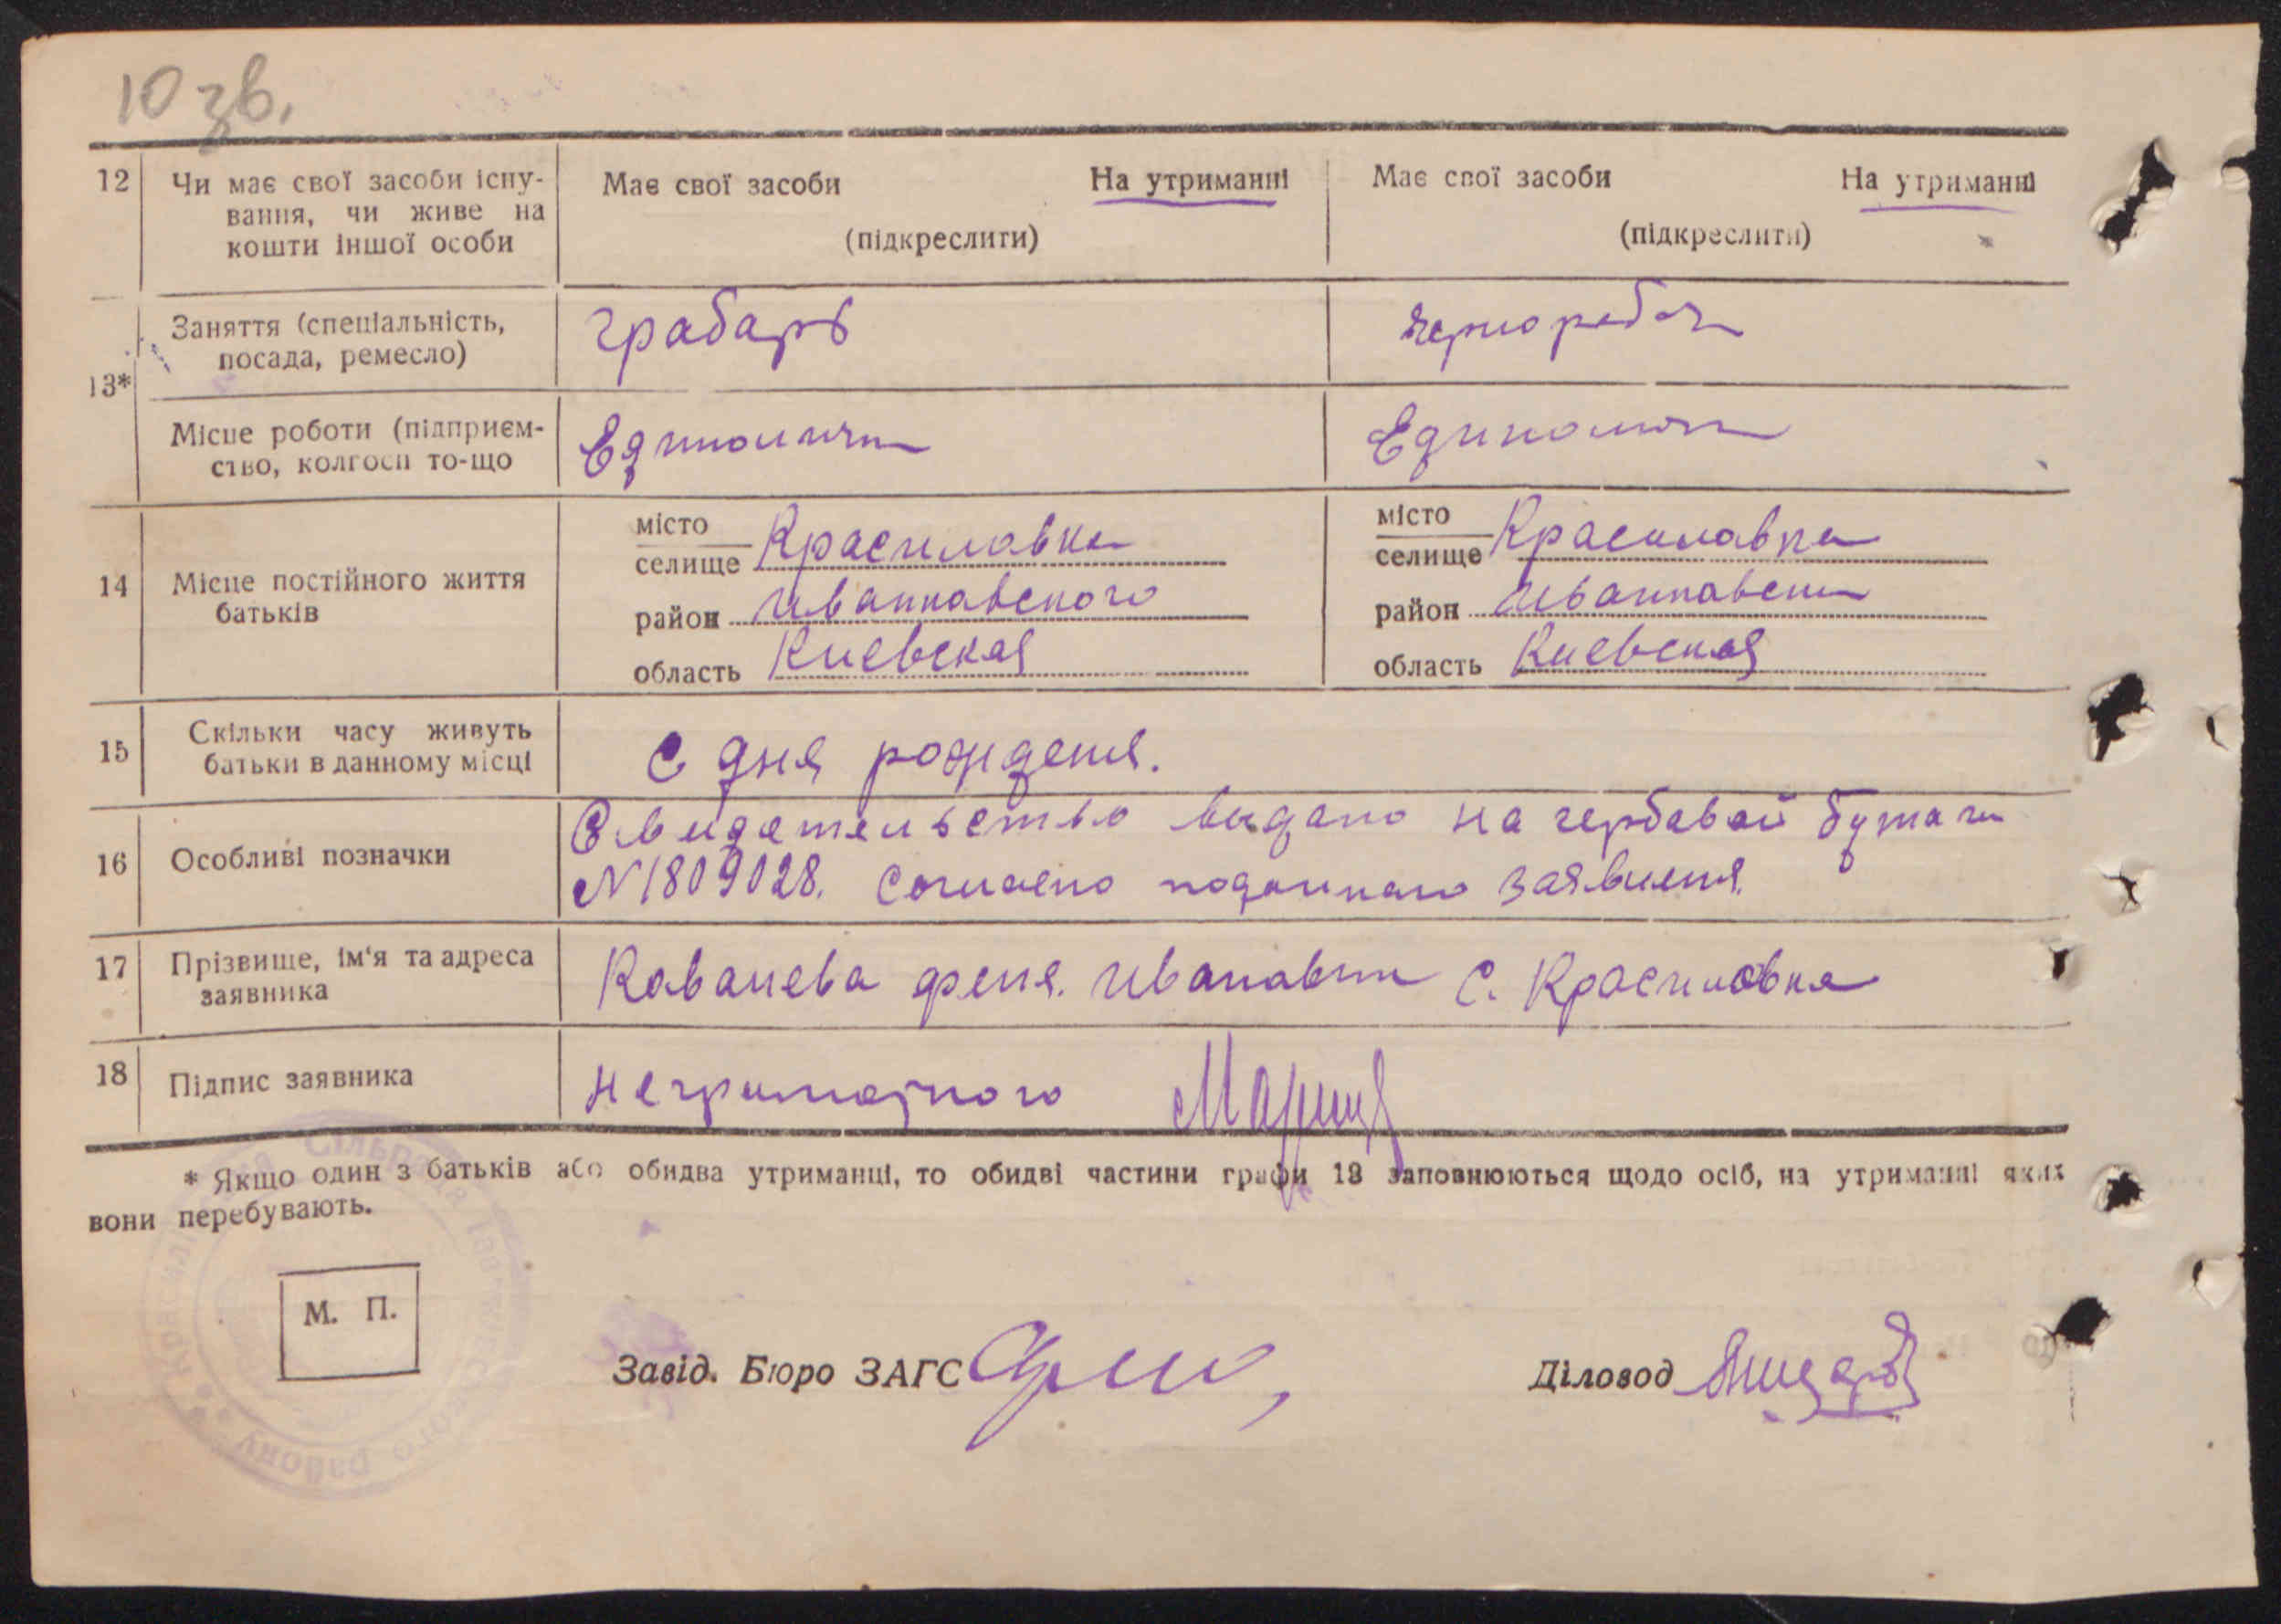 10 зв.
12 Чи має свої засоби існу-
вання, чи живе на
кошти іншої особи
Має свої засоби На утриманні
(підкреслити)
Має свої засоби На утриманні
(підкреслити)
13*
Заняття (спеціальність,
посада, ремесло)
грабарь
чернораб
Місце роботи (підприєм-
ство, колгосп то-що
Единолич
Единолич
14 Місце постійного життя
батьків
місто
селище Красиловка
район Иванкавского
область Киевская
місто
селище Красиловка
район Иванкавски
область Киевская
15 Скільки часу живуть
батьки в данному місці
С дня рождения.
16 Особливі позначки
Свидетельство выдано на гербавой бумаги
N1809028. Согласно поданнаго заявления.
17 Прізвище, ім'я та адреса
заявника
Кавалева феня. Ивановна С. Красиловка
18 Підпис заявника
неграмотного
* Якщо один з батьків або обидва утриманці, то обидві частини графи 13 заповнюються щодо осіб, на утриманні яких
вони перебувають.
Сільрада
району
М. П.
Завід. Бюро ЗАГС
Діловод